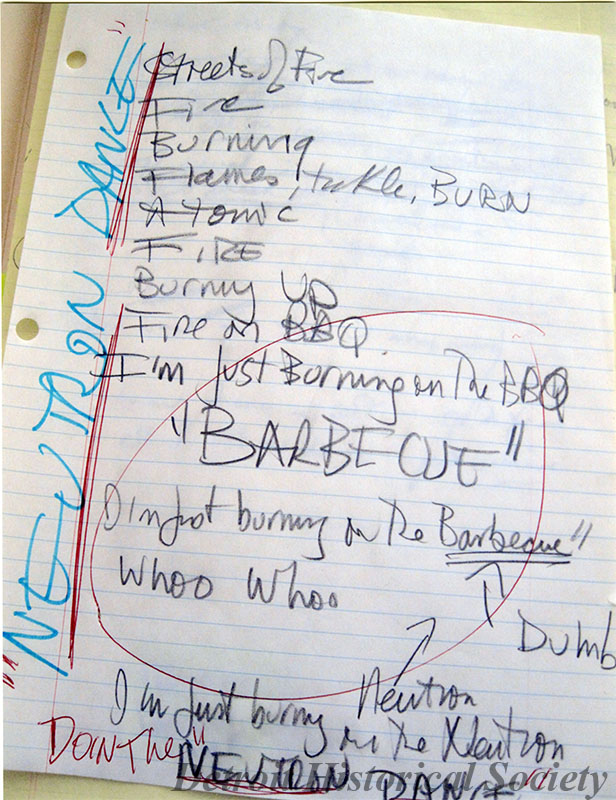 NEUTRON DANCE
Streets of Fire
Fire
Burning
Flames, tickle, BURN
Atomic
FIRE
Burning UP
Fire on BBQ
I'm Just Burning on The BBQ
"BARBECUE"
I'm Just burning on the Barbeque"
Whoo Whoo
Dumb
Neutron
I'm Just burning on the Neutron
Doin The"
NEUTRON DANCE"
Detroit Historical Society